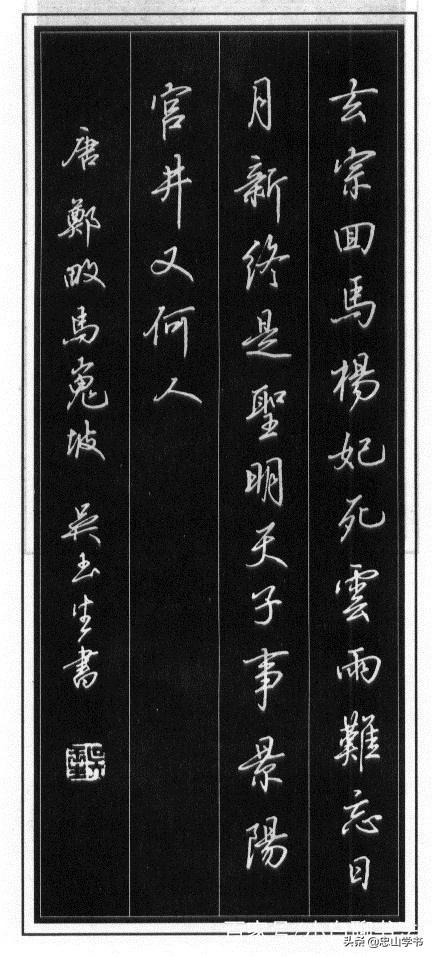 玄宗回馬楊妃死雲雨難忘日
月新終是聖明天子事景陽
宮井又何人
唐鄭畋馬嵬坡 吳玉生書
头条 @忠山学书